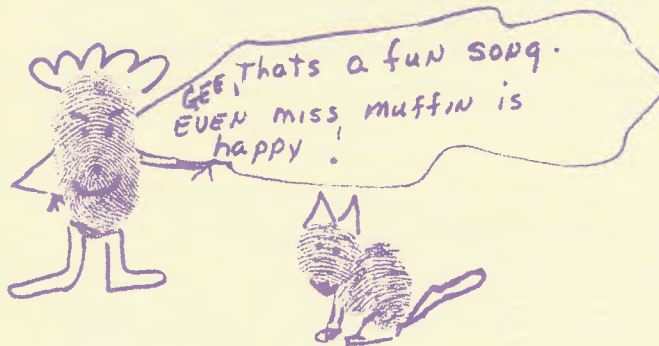 GEE, Thats a fun song.
EVEN miss muffin is
happy!